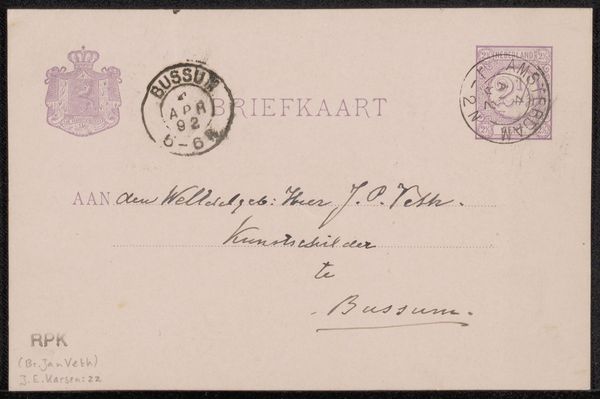 NEDERLAND
BUSSUM
APR
92
5-6
BRIEFKAART
AMSTERDAM
AAN den WelEdelgeb: Heer J. P. Veth.
Kunstschilder
te
Bussum.
RPK
(Br. Jan Veth)
J.E. Karsen: 22